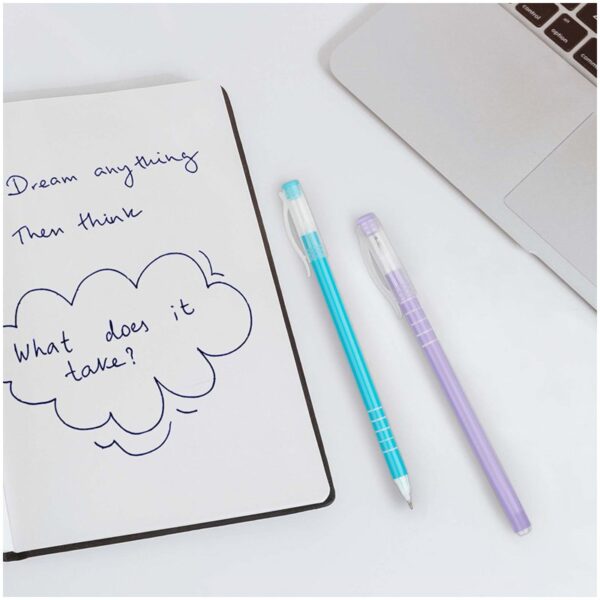 Dream anything
Then think
What does it
take?
control
alt
option